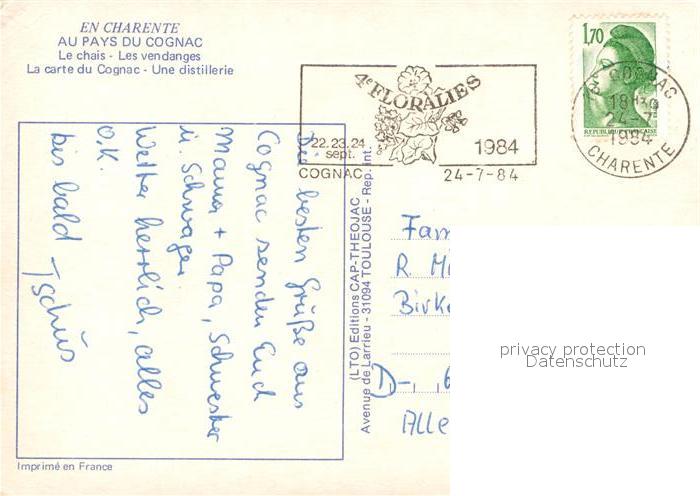 EN CHARENTE
AU PAYS DU COGNAC
Le chais - Les vendanges
La carte du Cognac - Une distillerie
4e FLORALIES
22.23.24
sept.
1984
COGNAC
24-7-84
1,70
REPUBLIQUE FRANÇAISE
COGNAC
18H30
24-7
1984
CHARENTE
Die besten Grüße aus
Cognac senden Euch
Mama + Papa, Schwester
u. Schwager.
Wetter herrlich, alles
O.K.
bis bald - Tschüs
(LTO) Editions CAP-THEOJAC
Avenue de Larrieu - 31094 TOULOUSE - Rep. int.
Fam
R. Mi
Birke
D-, 6
Alle
privacy protection
Datenschutz
Imprimé en France